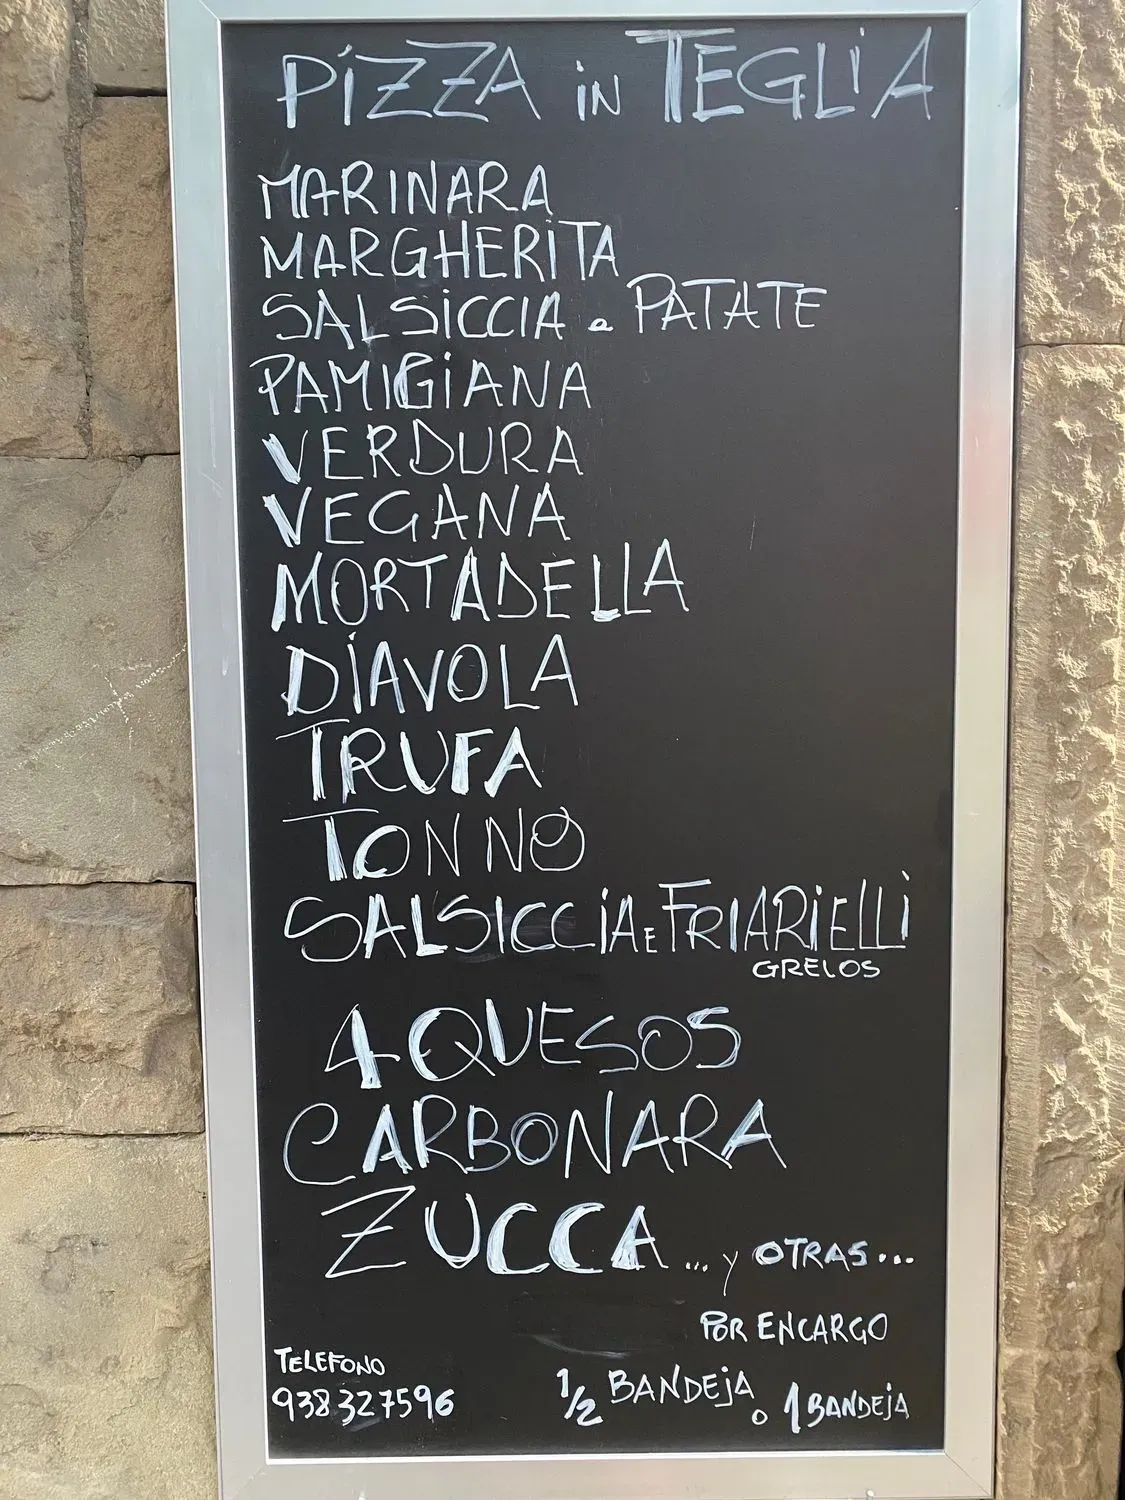 PIZZA IN TEGLIA
MARINARA
MARGHERITA
SALSICCIA e PATATE
PAMIGIANA
VERDURA
VEGANA
MORTADELLA
DIAVOLA
TRUFA
TONNO
SALSICCIA E FRIARIELLI
GRELOS
4 QUESOS
CARBONARA
ZUCCA... y OTRAS...
POR ENCARGO
TELEFONO
938327596
1/2 BANDEJA o 1 BANDEJA